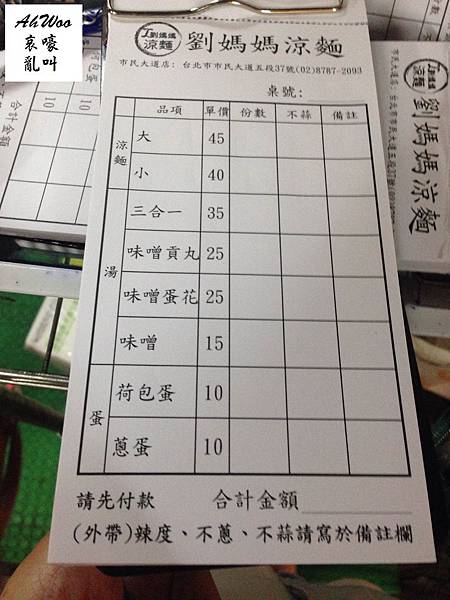 AhWoo
哀嚎
亂叫
劉媽媽
涼麵
劉媽媽涼麵
市民大道店: 台北市市民大道五段37號(02)8787-2093
桌號:
品項 單價 份數 不蒜 備註
涼麵
大 45
小 40
湯
三合一 35
味噌貢丸 25
味噌蛋花 25
味噌 15
蛋
荷包蛋 10
蔥蛋 10
請先付款 合計金額
(外帶)辣度、不蔥、不蒜請寫於備註欄
合計金額
劉媽媽涼麵